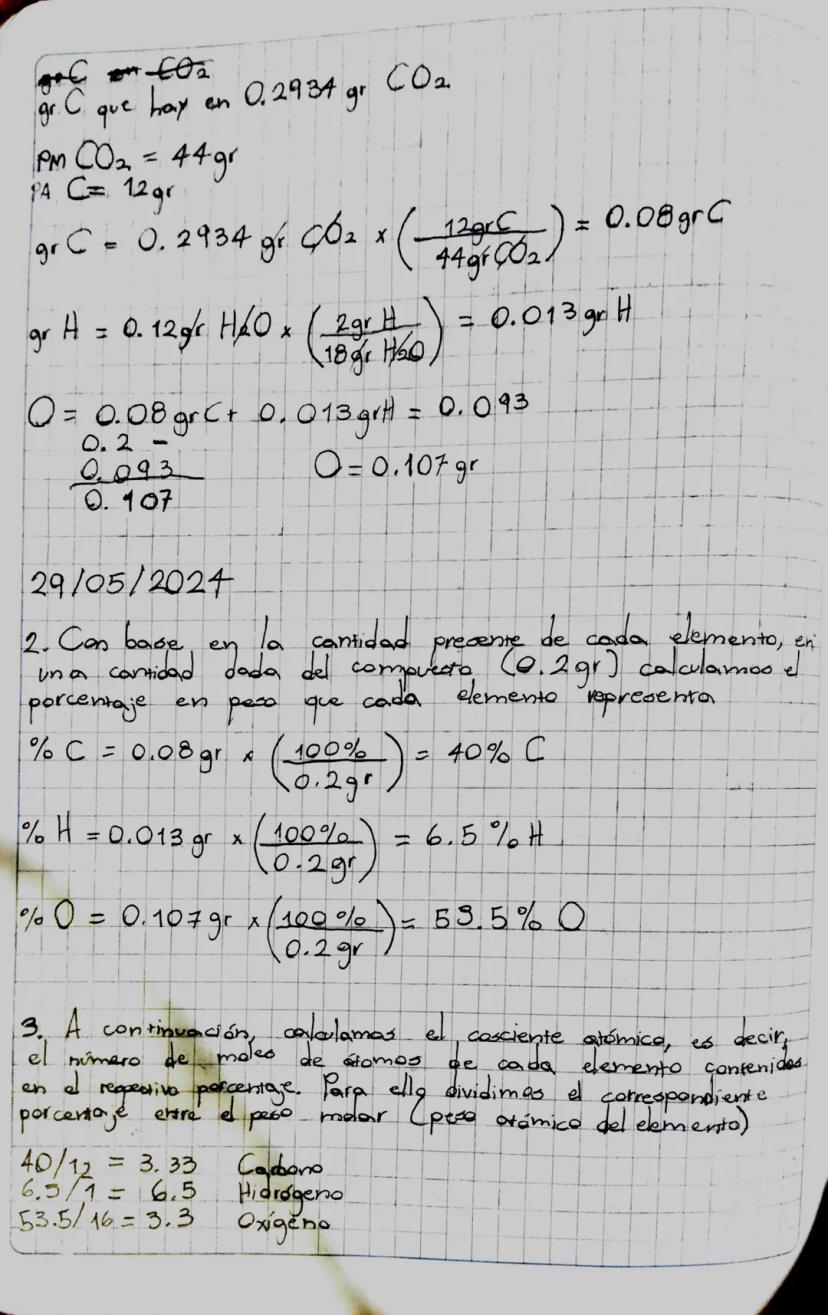 gr C en CO2
gr C que hay en 0.2934 gr CO2
PM CO2 = 44gr
PA C= 12gr
gr C = 0.2934 gr CO2 x (12gr C / 44gr CO2) = 0.08 gr C
gr H = 0.12gr H2O x (2gr H / 18gr H2O) = 0.013 gr H
O = 0.08 gr C + 0.013 gr H = 0.093
0.2 -
0.093 O = 0.107 gr
0.107
29/05/2024
2. Con base en la cantidad presente de cada elemento, en
una cantidad dada del compuesto (0.2gr) calculamos el
porcentaje en peso que cada elemento representa
% C = 0.08 gr x (100% / 0.2gr) = 40% C
% H = 0.013 gr x (100% / 0.2gr) = 6.5 % H
% O = 0.107 gr x (100 % / 0.2gr) = 53.5% O
3. A continuación, calculamos el cosciente atómico, es decir,
el número de moles de átomos de cada elemento contenidos
en el respectivo porcentaje. Para ello dividimos el correspondiente
porcentaje entre el peso molar (peso atómico del elemento)
40/12 = 3.33 Carbono
6.5/1 = 6.5 Hidrógeno
53.5/16 = 3.3 Oxígeno